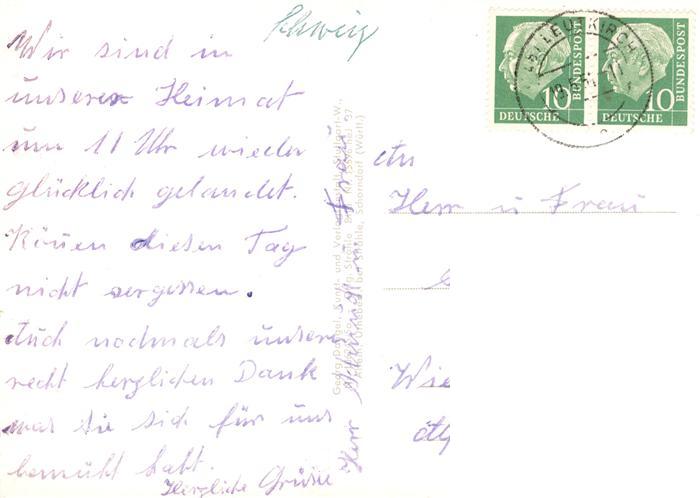 Schweiz
Wir sind in
unserer Heimat
um 11 Uhr wieder
glücklich gelandet.
Könen diesen Tag
nicht vergessen.
Auch nochmals unseren
recht herzlichen Dank
was Sie sich für uns
bemüht habt.
Herzliche Grüsse
Herr
Frau
DEUTSCHE
BUNDESPOST
10
DEUTSCHE
BUNDESPOST
10
LEUTKIRCH
An
Herr u Frau
Wie